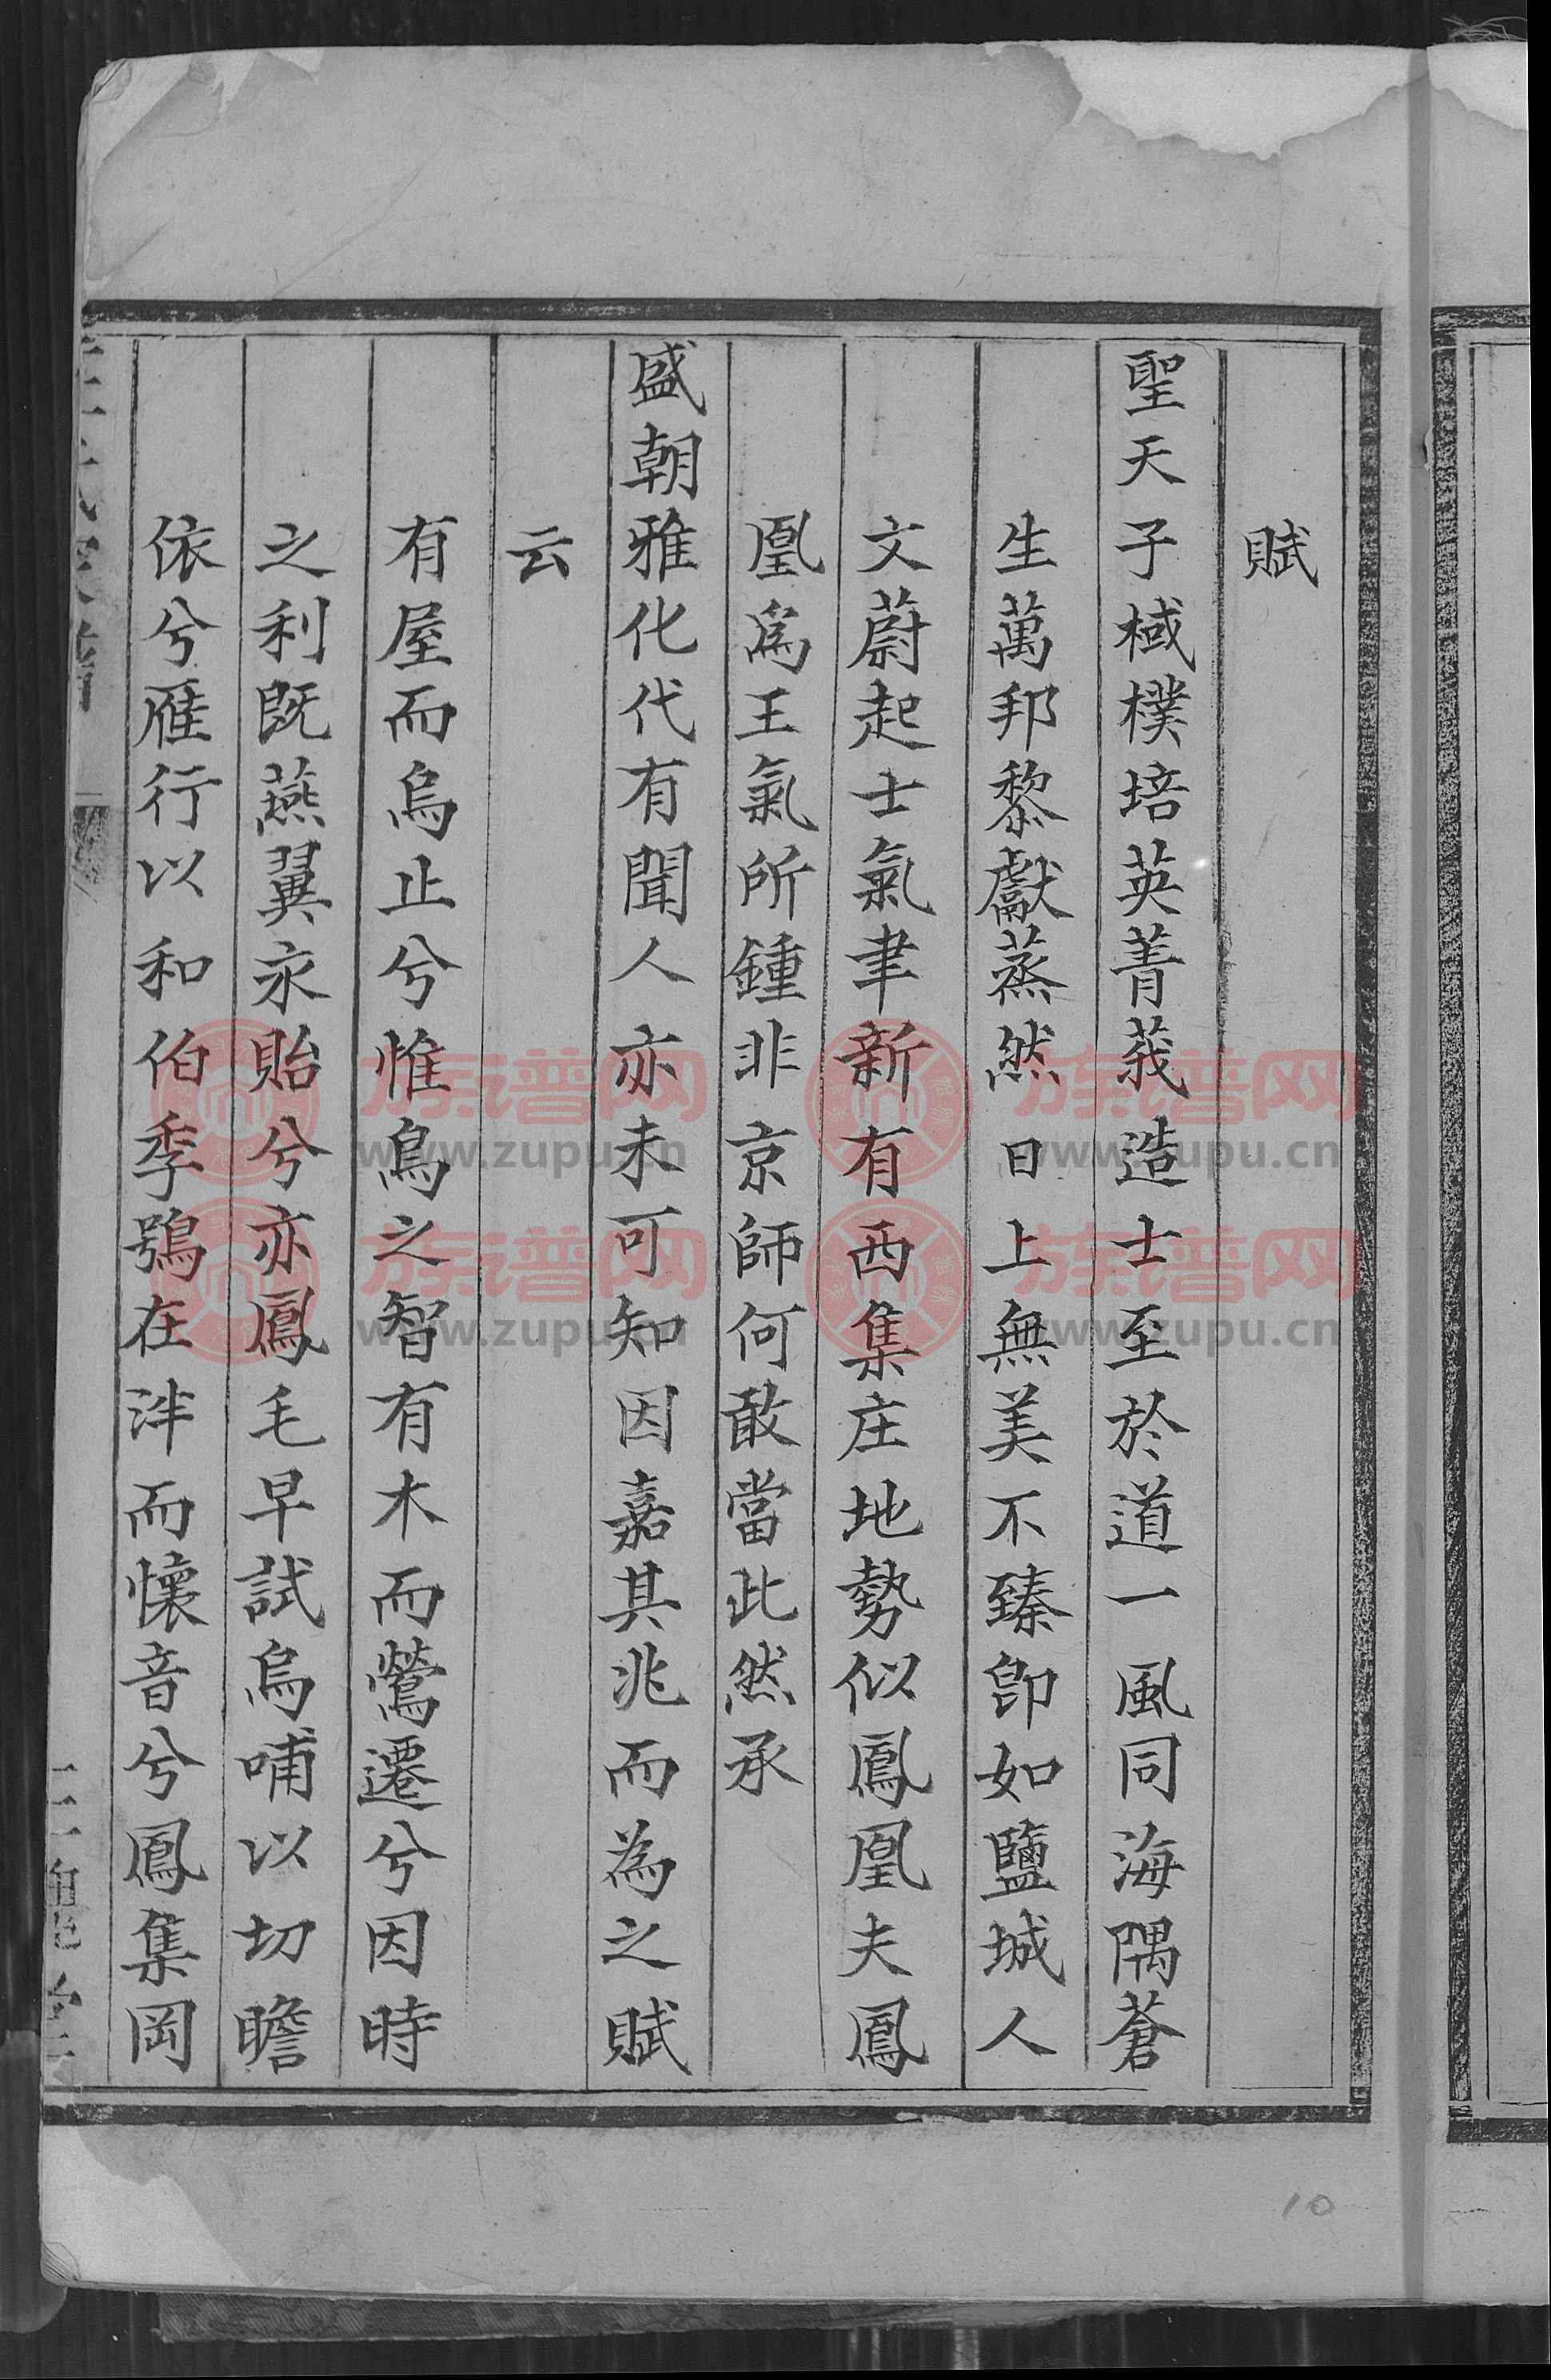 賦
聖天子棫樸培英菁莪造士至於道一風同海隅蒼
生萬邦黎獻蒸然日上無美不臻卽如鹽城人
文蔚起士氣聿新有西集庄地勢似鳳凰夫鳳
凰爲王氣所鍾非京師何敢當此然承
盛朝雅化代有聞人亦未可知因嘉其兆而為之賦
云
有屋而烏止兮惟鳥之智有木而鶯遷兮因時
之利既燕翼永貽兮亦鳳毛早試烏哺以切瞻
依兮雁行以和伯季鴞在泮而懷音兮鳳集岡
族譜网
www.zupu.cn
族譜网
www.zupu.cn
族譜网
www.zupu.cn
族譜网
www.zupu.cn
10